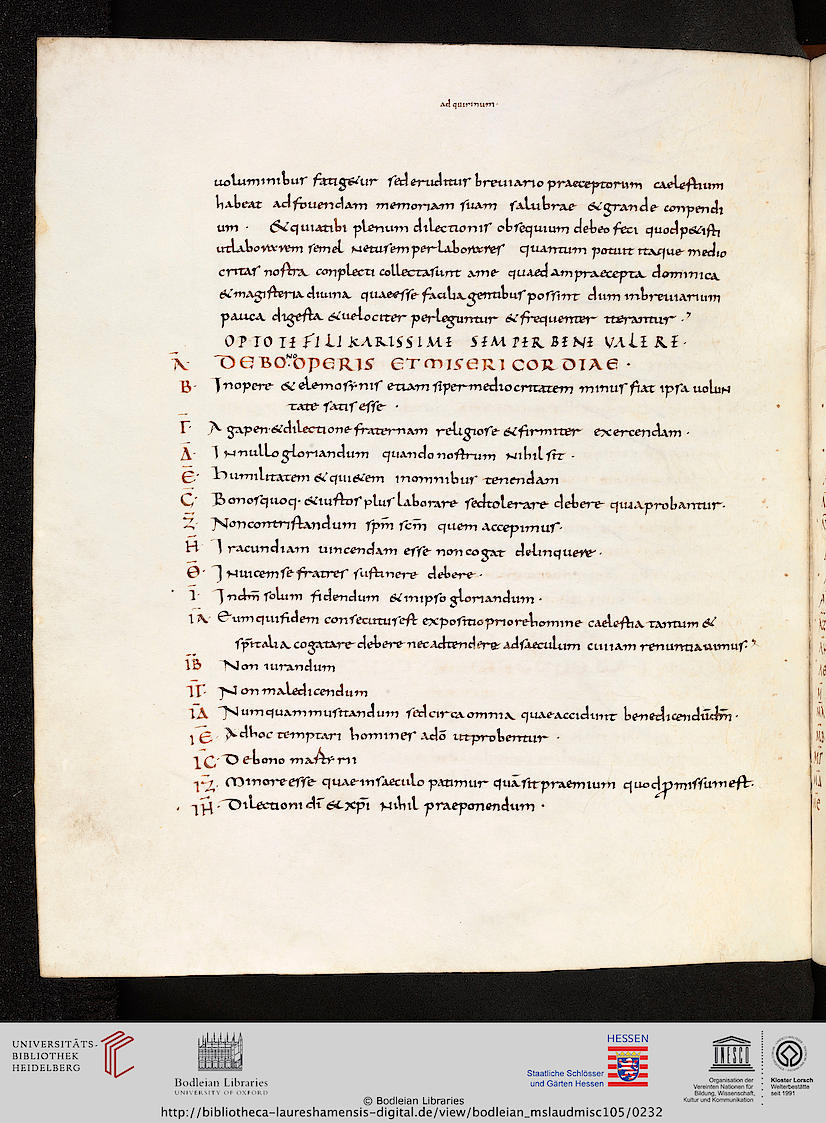 ad quirinum·
uoluminibus fatig&ur sed eruditus breuiario praeceptorum caelestium
habeat ad fouendam memoriam suam salubrae & grande conpendi
um · & quia tibi plenum dilectionis obsequium debeo feci quod p&isti
ut laborarem semel ne tu semper laborares quantum potuit itaque medio
critas nostra conplecti collecta sunt a me quaedam praecepta dominica
& magisteria diuina quae esse facilia gentibus possint dum in breuiarium
pauca digesta & uelociter perleguntur & frequenter iterantur ·
OPTO TE FILI KARISSIME SEMPER BENE VALERE·
Α· DE BONO OPERIS ET MISERICORDIAE ·
Β· In opere & elemosynis etiam si per mediocritatem minus fiat ipsa uolun
tate satis esse ·
Γ· Agapen & dilectione fraternam religiose & firmiter exercendam ·
Δ· In nullo gloriandum quando nostrum nihil sit ·
Ε· humilitatem & qui&em in omnibus tenendam
Ϛ· Bonos quoq· & iustos plus laborare sed tolerare debere quia probantur·
Ζ· Non contristandum spm scm quem accepimus·
Η· Iracundiam uincendam esse non cogat delinquere·
Θ· Inuicem se fratres sustinere debere·
Ι· In dm solum fidendum & in ipso gloriandum ·
ΙΑ· Eum qui fidem consecutus est exposito priore homine caelestia tantum &
spitalia cogatare debere nec adtendere ad saeculum cui iam renuntiauimus·
ΙΒ Non iurandum
ΙΓ· Non maledicendum
ΙΔ Numquam musitandum sed circa omnia quae accidunt benedicendū dm̄·
ΙΕ· Ad hoc temptari homines a dō ut probentur ·
ΙϚ· De bono martyrii
ΙΖ· Minore esse quae in saeculo patimur quā sit praemium quod promissum est·
ΙΗ· Dilectioni dī & xpī nihil praeponendum ·
UNIVERSITÄTS-
BIBLIOTHEK
HEIDELBERG
Bodleian Libraries
UNIVERSITY OF OXFORD
HESSEN
Staatliche Schlösser
und Gärten Hessen
UNESCO
Organisation der
Vereinten Nationen für
Bildung, Wissenschaft,
Kultur und Kommunikation
Kloster Lorsch
Welterbestätte
seit 1991
© Bodleian Libraries
http://bibliotheca-laureshamensis-digital.de/view/bodleian_mslaudmisc105/0232